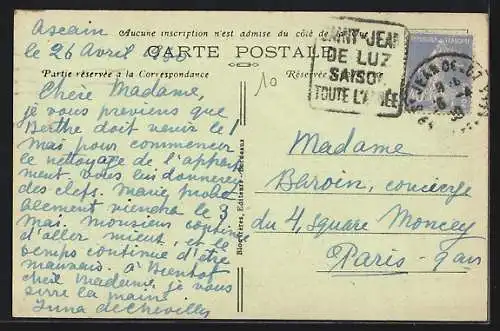 Ascain
le 26 Avril 1930
Aucune inscription n'est admise du côté de la
CARTE POSTALE
Partie réservée à la Correspondance
Réservé
SAINT-JEAN
DE LUZ
SAISON
TOUTE L'ANNÉE
10
Chère Madame,
je vous previens que
Berthe doit venir le 1
Mai pour commencer
le nettoyage de l'appart
ment, vous lui donnerez
des clefs. Marie probabl
ement viendra le 3
Mai. Monsieur continue
d'aller mieux, et le
temps continue d'être
mauvais. A Bientôt
chère Madame, je vous
serre la main
de Chevilly
Madame
Baroin, concierge
du 4, square Moncey
Paris - 9em